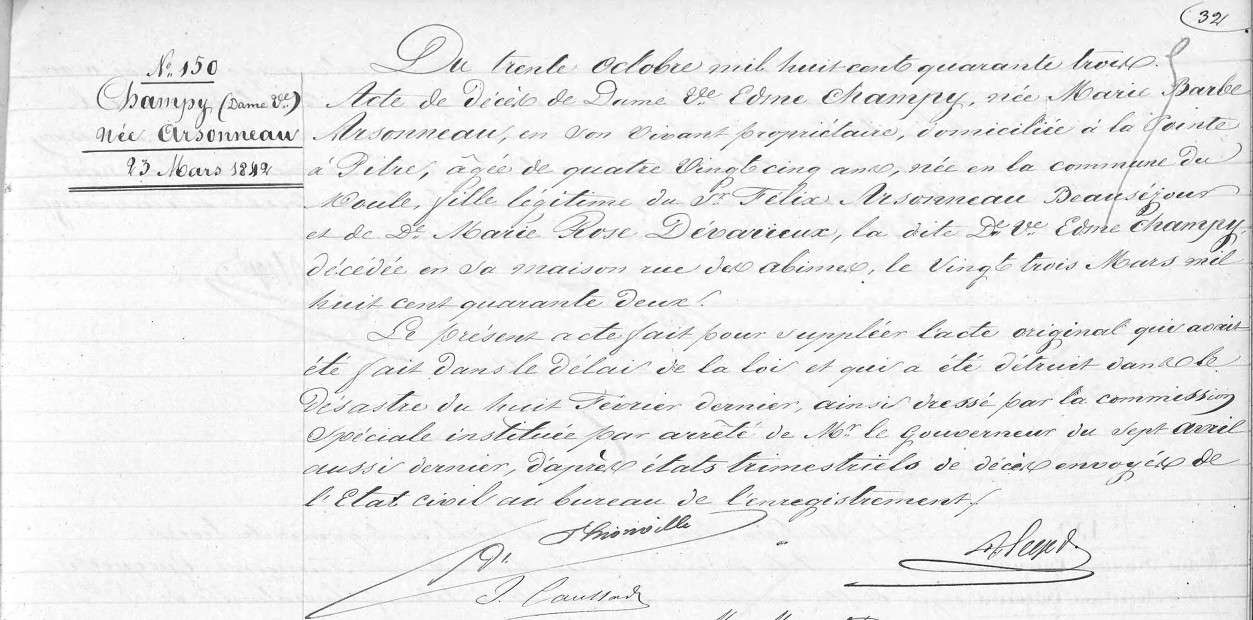 32
N° 150
Champy (Dame Vve)
née Arsonneau
23 Mars 1842
Du trente octobre mil huit cent quarante trois.
Acte de décès de Dame Ve Edme Champy, née Marie Barbe
Arsonneau, en son vivant propriétaire, domiciliée à la Pointe
à Pitre, âgée de quatre vingt cinq ans, née en la commune du
Moule, fille légitime du Sr Félix Arsonneau Beauséjour
et de De Marie Rose Dévarieux, la dite De Ve Edme Champy
décédée en sa maison rue des abimes, le vingt trois Mars mil
huit cent quarante deux.
Le présent acte fait pour suppléer l'acte original qui avait
été fait dans le délai de la loi et qui a été détruit dans le
désastre du huit Février dernier, ainsi dressé par la commission
spéciale instituée par arrêté de Mr le Gouverneur du sept avril
aussi dernier, d'après états trimestriels de décès envoyés de
l'Etat civil au bureau de l'enregistrement.
Thionville
J. Caussade